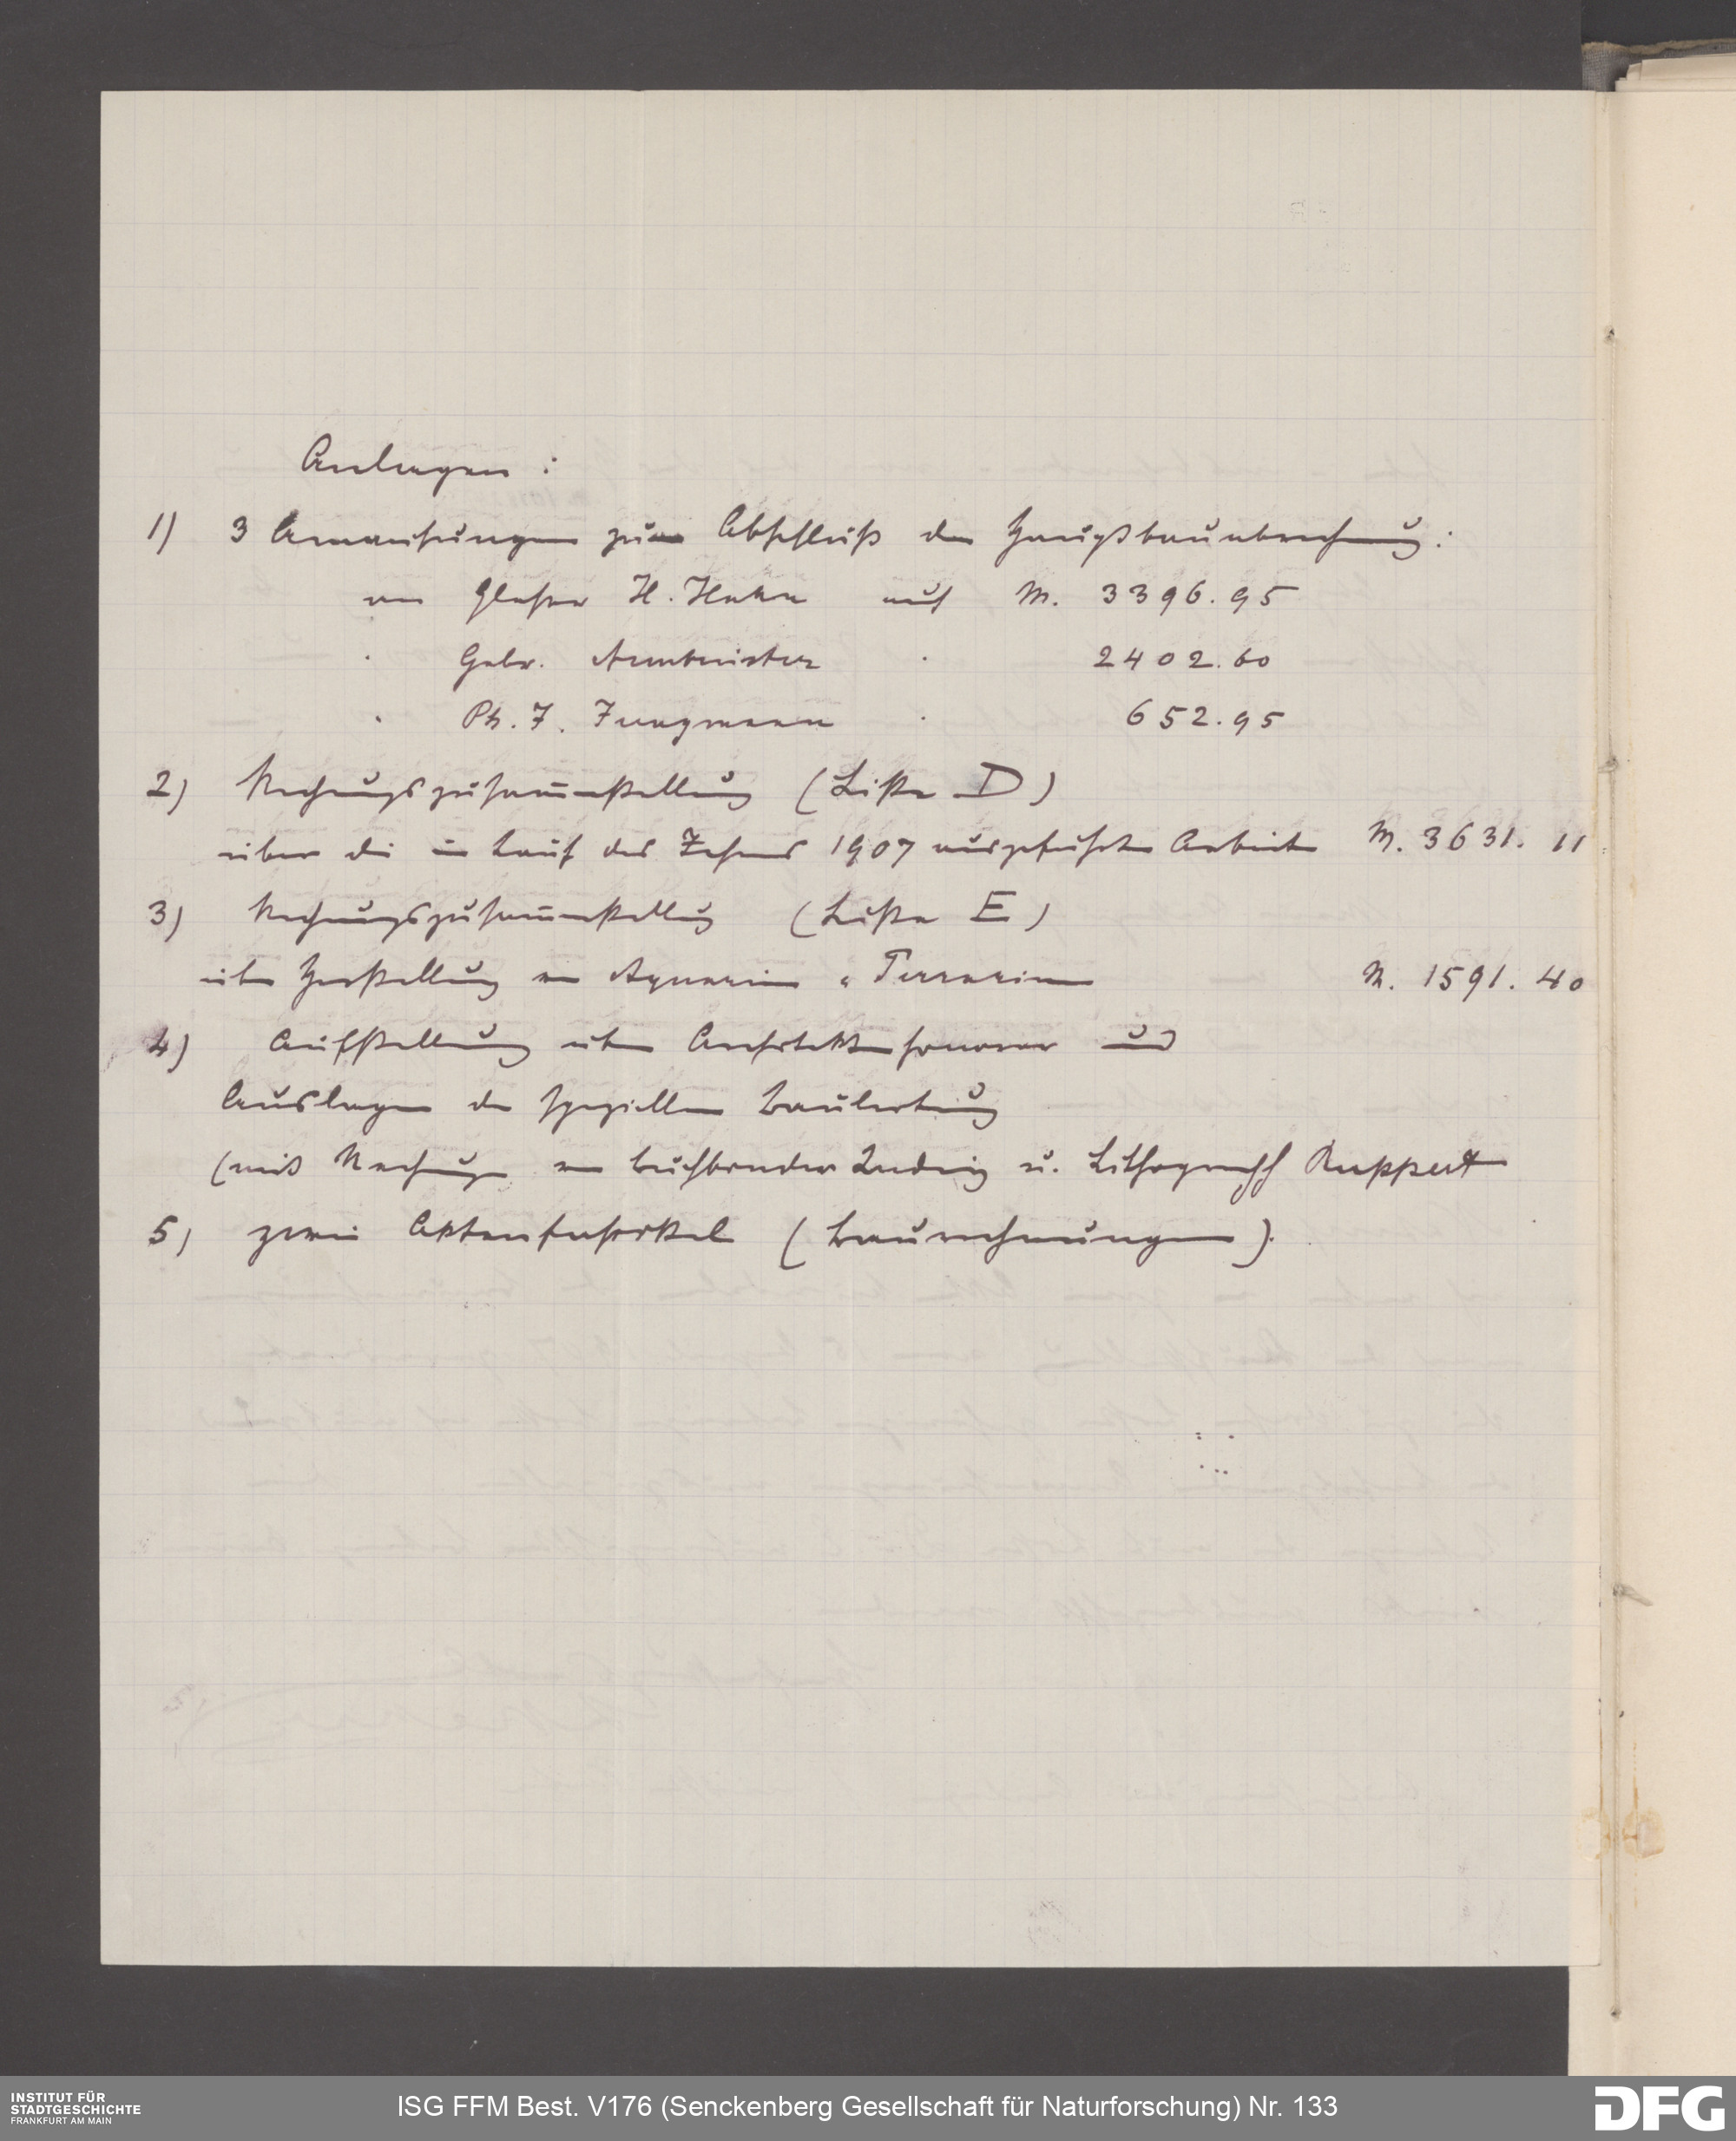 Anlagen:
1) 3 Anweisungen zum Abschluß der Hauptbauabrechnung:
an Glaser H. Hahn auf M. 3396.95
" Gebr. Armbrüster " 2402.60
" Ph. J. Jungmann " 652.95
2) Rechnungszusammenstellung (Liste D)
über die im Lauf des Jahres 1907 ausgeführten Arbeiten M. 3631.11
3) Rechnungszusammenstellung (Liste E)
über Herstellung von Aquarien u. Terrarien M. 1591.40
4) Aufstellung über Architektenhonorar und
Auslagen der speziellen Bauleitung
(mit Rechnungen von Buchbinder Ludwig u. Lithograph Ruppert
5) zwei Aktenfaszikel (Baurechnungen).
INSTITUT FÜR
STADTGESCHICHTE
FRANKFURT AM MAIN
ISG FFM Best. V176 (Senckenberg Gesellschaft für Naturforschung) Nr. 133
DFG